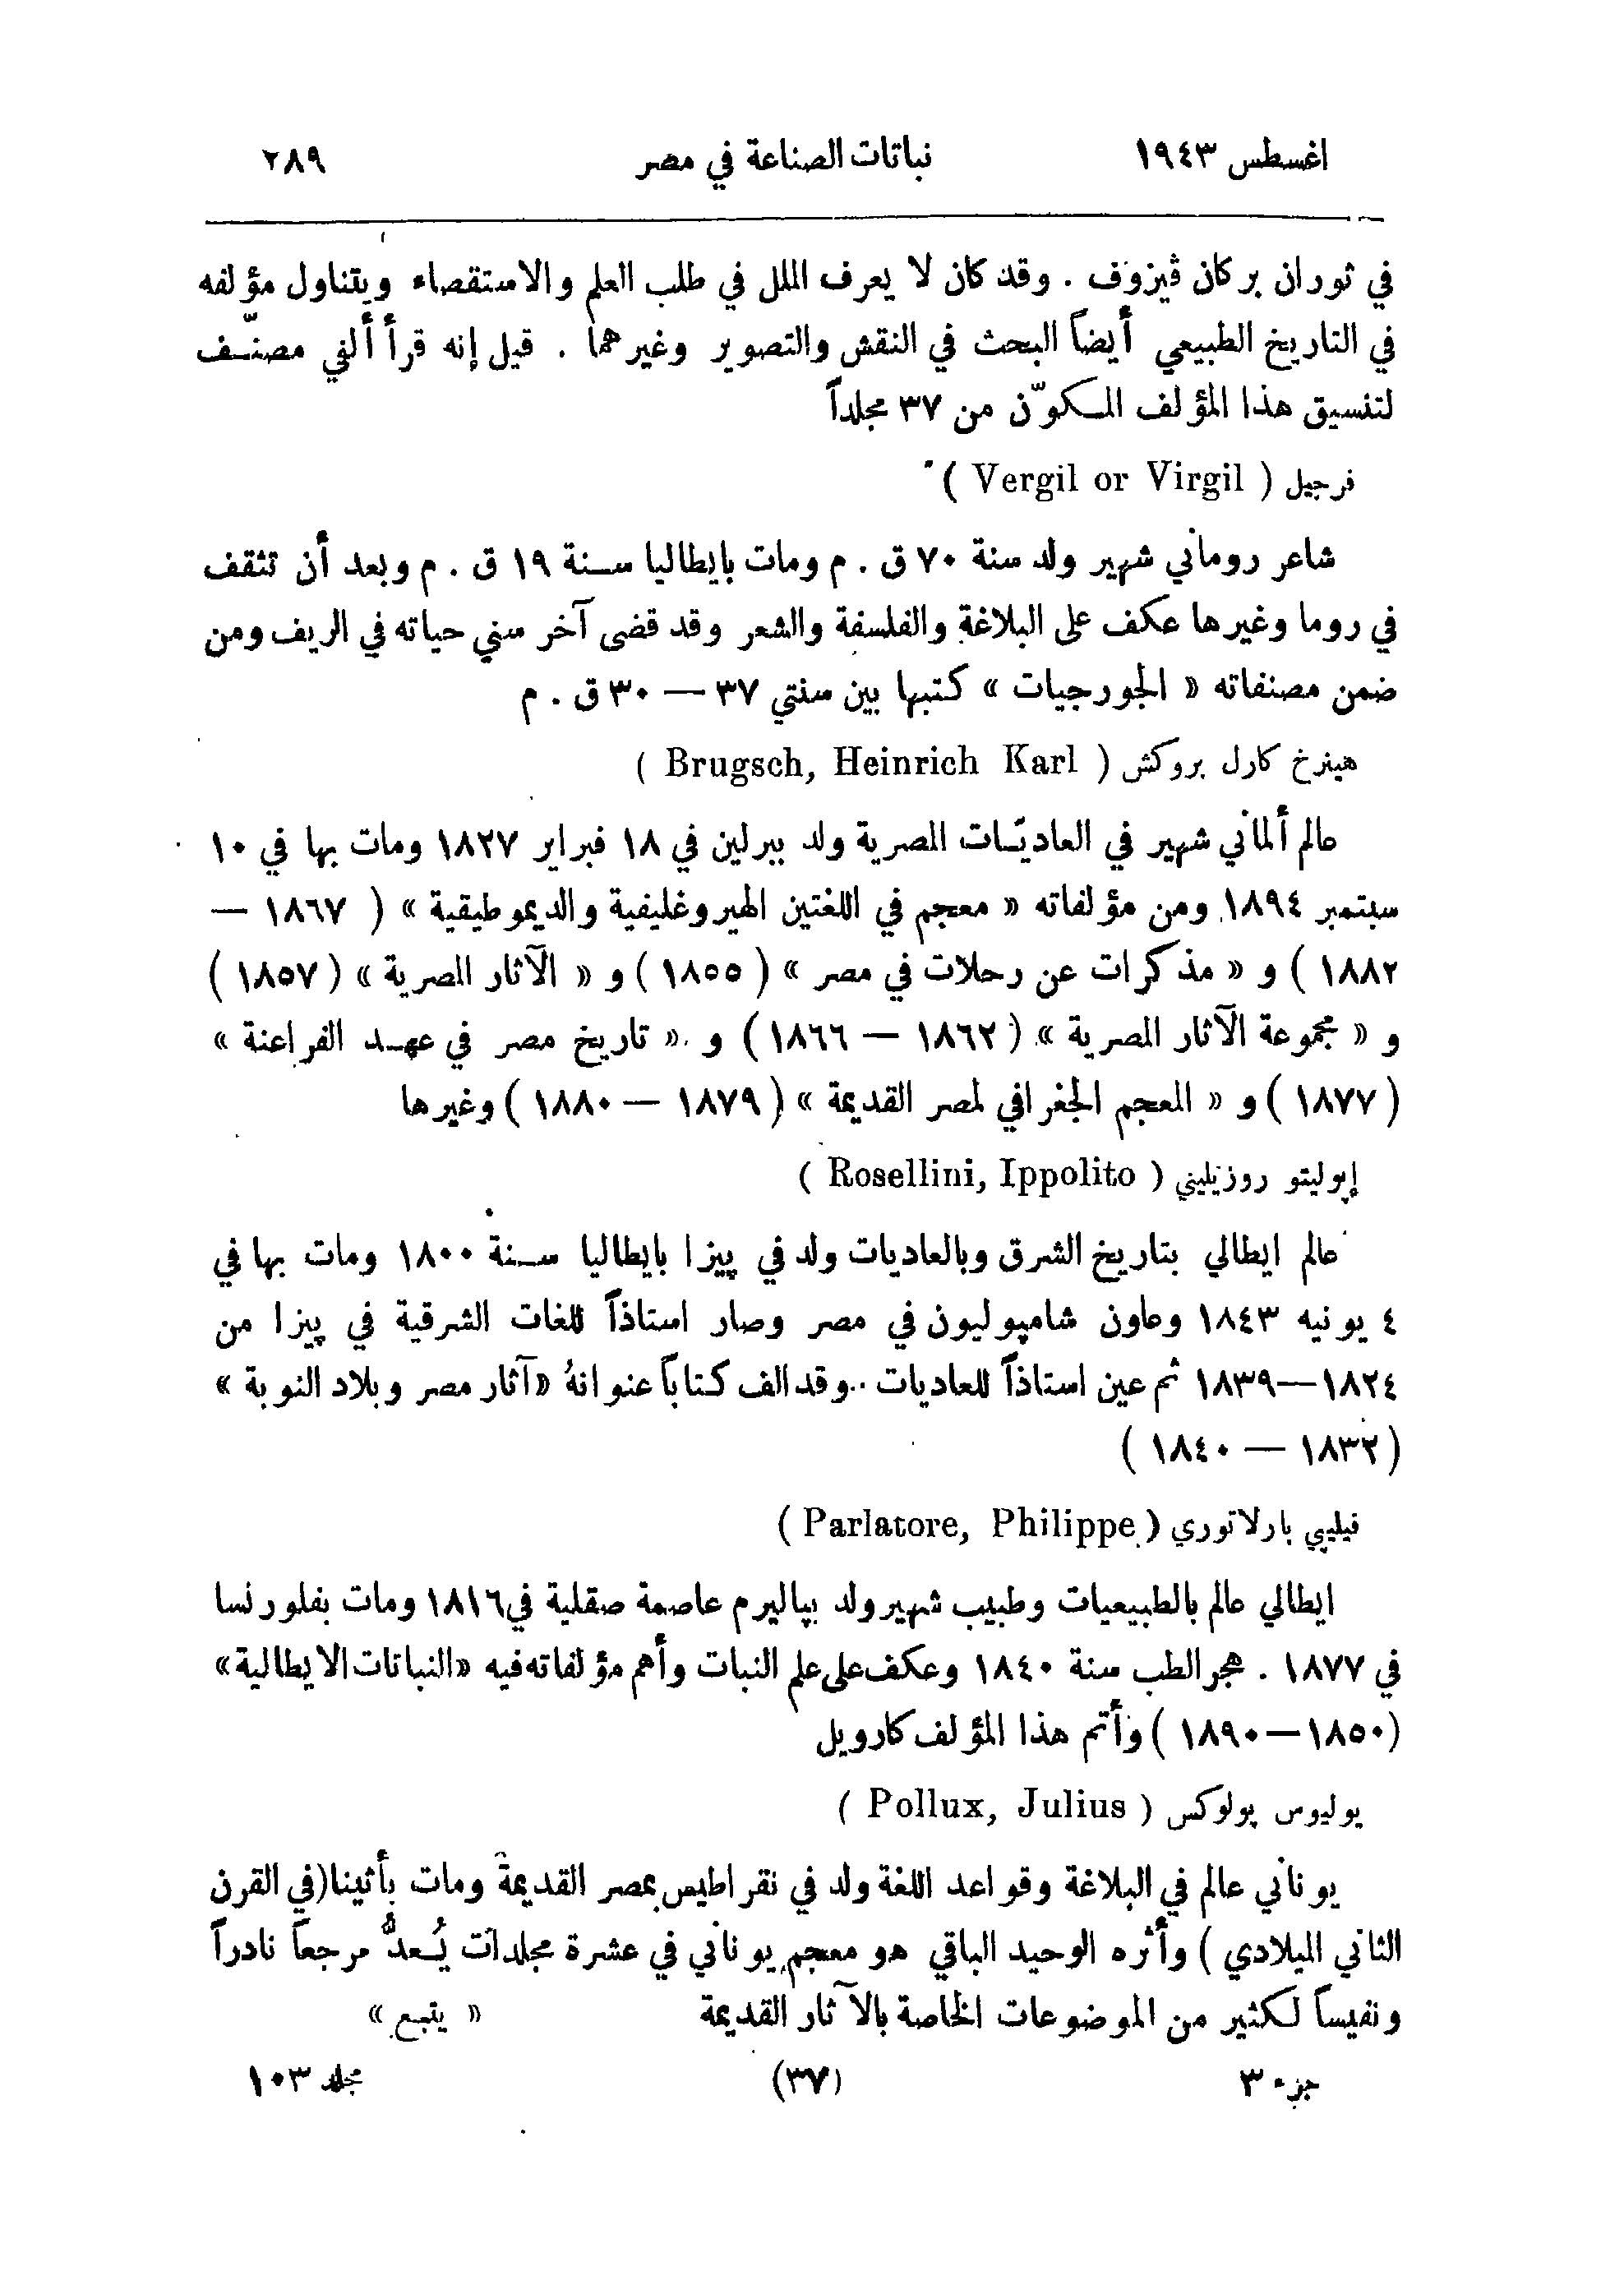 اغسطس ١٩٤٣ نباتات الصناعة في مصر ٢٨٩
في ثوران بركان ڤيزوف . وقد كان لا يعرف الملل في طلب العلم والاستقصاء ويتناول مؤلفه
في التاريخ الطبيعي أيضاً البحث في النقش والتصوير وغيرهما . قيل إنه قرأ ألفي مصنّف
لتنسيق هذا المؤلف المكوّن من ٣٧ مجلداً
فرجيل ( Vergil or Virgil )
شاعر روماني شهير ولد سنة ٧٠ ق . م ومات بايطاليا سنة ١٩ ق . م وبعد أن تثقف
في روما وغيرها عكف على البلاغة والفلسفة والشعر وقد قضى آخر سني حياته في الريف ومن
ضمن مصنفاته « الجورجيات » كتبها بين سنتي ٣٧ — ٣٠ ق . م
هينرخ كارل بروكش ( Brugsch, Heinrich Karl )
عالم ألماني شهير في العاديّات المصرية ولد ببرلين في ١٨ فبراير ١٨٢٧ ومات بها في ١٠
سبتمبر ١٨٩٤ ومن مؤلفاته « معجم في اللغتين الهيروغليفية والديموطيقية » ( ١٨٦٧ —
١٨٨٢ ) و « مذكرات عن رحلات في مصر » ( ١٨٥٥ ) و « الآثار المصرية » ( ١٨٥٧ )
و « مجموعة الآثار المصرية » ( ١٨٦٢ — ١٨٦٦ ) و « تاريخ مصر في عهد الفراعنة »
( ١٨٧٧ ) و « المعجم الجغرافي لمصر القديمة » ( ١٨٧٩ — ١٨٨٠ ) وغيرها
إپوليتو روزيليني ( Rosellini, Ippolito )
عالم ايطالي بتاريخ الشرق وبالعاديات ولد في پيزا بايطاليا سنة ١٨٠٠ ومات بها في
٤ يونيه ١٨٤٣ وعاون شامپوليون في مصر وصار استاذاً للغات الشرقية في پيزا من
١٨٢٤—١٨٣٩ ثم عين استاذاً للعاديات .. وقد الف كتاباً عنوانهُ « آثار مصر وبلاد النوبة »
( ١٨٣٢ — ١٨٤٠ )
فيليپي بارلاتوري ( Parlatore, Philippe )
ايطالي عالم بالطبيعيات وطبيب شهير ولد بپاليرم عاصمة صقلية في ١٨١٦ ومات بفلورنسا
في ١٨٧٧ . هجر الطب سنة ١٨٤٠ وعكف على علم النبات وأهم مؤلفاته فيه « النباتات الايطالية »
( ١٨٥٠ — ١٨٩٠ ) وأتم هذا المؤلف كارويل
يوليوس پولوكس ( Pollux, Julius )
يوناني عالم في البلاغة وقواعد اللغة ولد في نقراطيس بمصر القديمة ومات بأثينا ( في القرن
الثاني الميلادي ) وأثره الوحيد الباقي هو معجم يوناني في عشرة مجلدات يُعدُّ مرجعاً نادراً
ونفيساً لكثير من الموضوعات الخاصة بالآثار القديمة « يتبع »
جزء ٣ (٣٧) مجلد ١٠٣